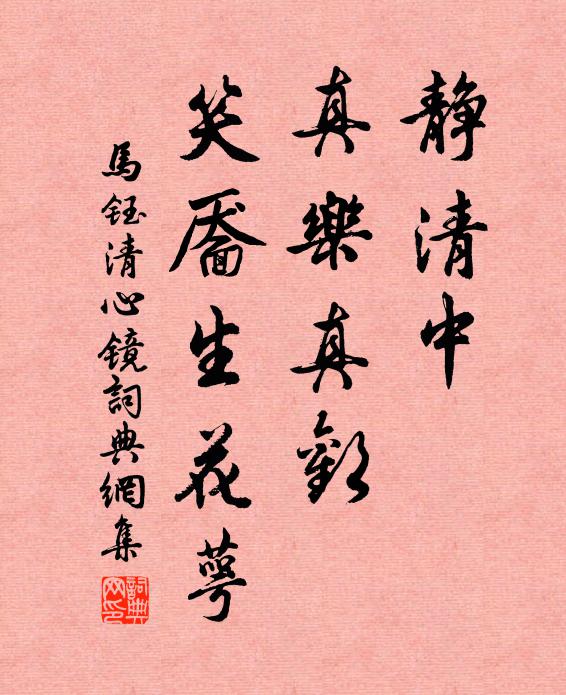 静清中
真樂真歡
笑靥生花萼
馬鈺清心镜詞典網集
詞典网印